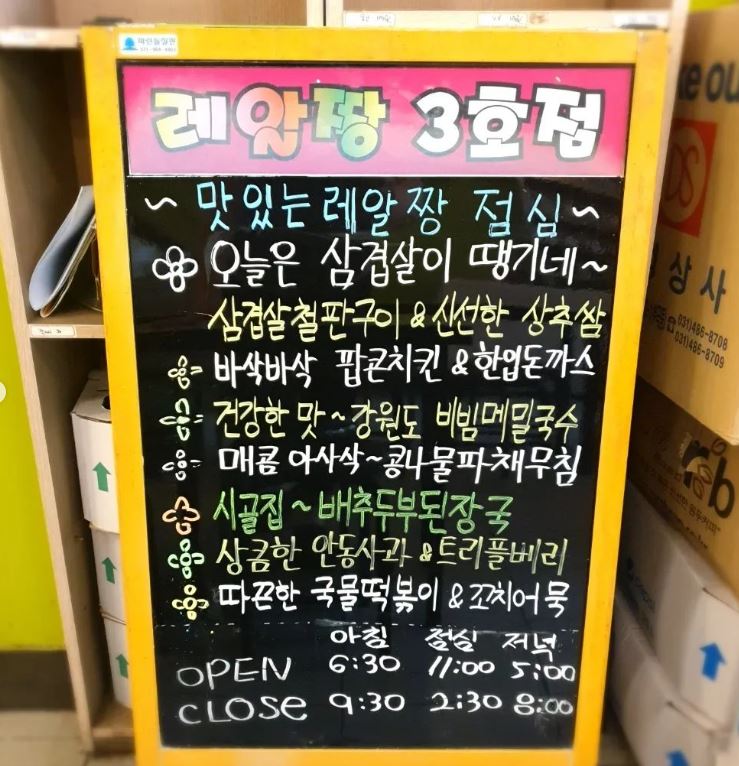 레알짱 3호점
~ 맛있는 레알짱 점심 ~
오늘은 삼겹살이 땡기네~
삼겹살철판구이 & 신선한 상추쌈
바삭바삭 팝콘치킨 & 한입돈까스
건강한 맛~강원도 비빔메밀국수
매콤 아사삭~콩나물파채무침
시골집~배추두부된장국
상큼한 안동사과 & 트리플베리
따끈한 국물떡볶이 & 꼬치어묵
아침 점심 저녁
OPEN 6:30 11:00 5:00
CLOSE 9:30 2:30 8:00
ke ou
DS
상사
031)486-8708
031)486-8709